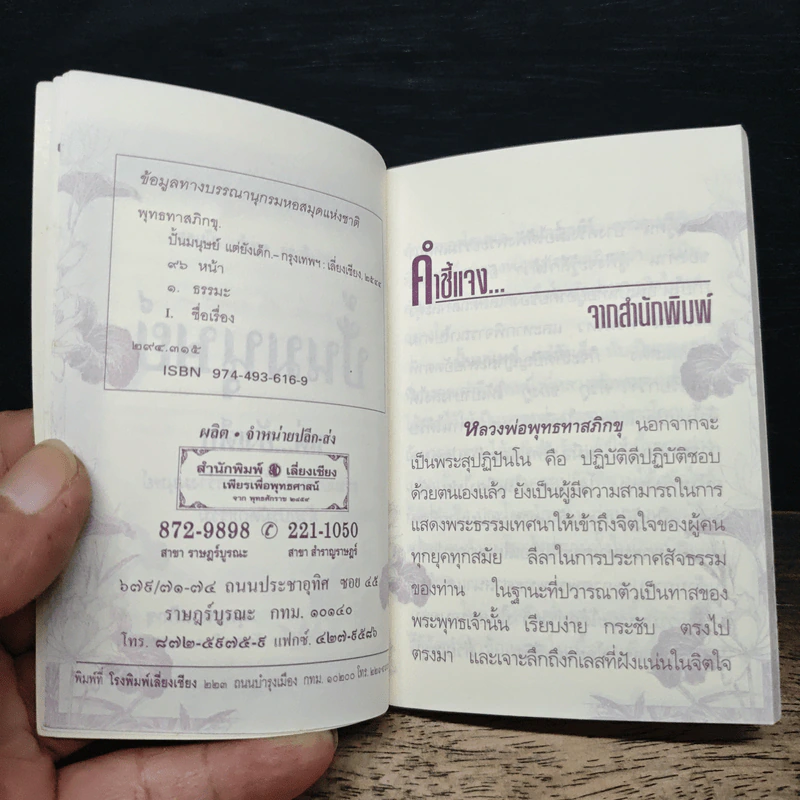 ข้อมูลทางบรรณานุกรมหอสมุดแห่งชาติ
พุทธทาสภิกขุ.
ปั้นมนุษย์ แต่ยังเด็ก.–กรุงเทพฯ : เลี่ยงเชียง, ๒๕๔๔
๙๖ หน้า
๑. ธรรมะ
I. ชื่อเรื่อง
๒๙๔.๓๑๕
ISBN 974-493-616-9
ผลิต • จำหน่ายปลีก-ส่ง
สำนักพิมพ์ เลี่ยงเชียง
เพียรเพื่อพุทธศาสน์
จาก พุทธศักราช ๒๔๕๙
872-9898 ✆ 221-1050
สาขา ราษฎร์บูรณะ สาขา สำราญราษฎร์
๖๗๙/๗๑-๗๔ ถนนประชาอุทิศ ซอย ๔๕
ราษฎร์บูรณะ กทม. ๑๐๑๔๐
โทร. ๘๗๒-๕๙๗๕-๙ แฟกซ์. ๔๒๗-๙๕๙๖
พิมพ์ที่ โรงพิมพ์เลี่ยงเชียง ๒๒๓ ถนนบำรุงเมือง กทม. ๑๐๒๐๐ โทร.
คำชี้แจง...
จากสำนักพิมพ์
หลวงพ่อพุทธทาสภิกขุ นอกจากจะ
เป็นพระสุปฏิปันโน คือ ปฏิบัติดีปฏิบัติชอบ
ด้วยตนเองแล้ว ยังเป็นผู้มีความสามารถในการ
แสดงพระธรรมเทศนาให้เข้าถึงจิตใจของผู้คน
ทุกยุคทุกสมัย ลีลาในการประกาศสัจธรรม
ของท่าน ในฐานะที่ปวารณาตัวเป็นทาสของ
พระพุทธเจ้านั้น เรียบง่าย กระชับ ตรงไป
ตรงมา และเจาะลึกถึงกิเลสที่ฝังแน่นในจิตใจ